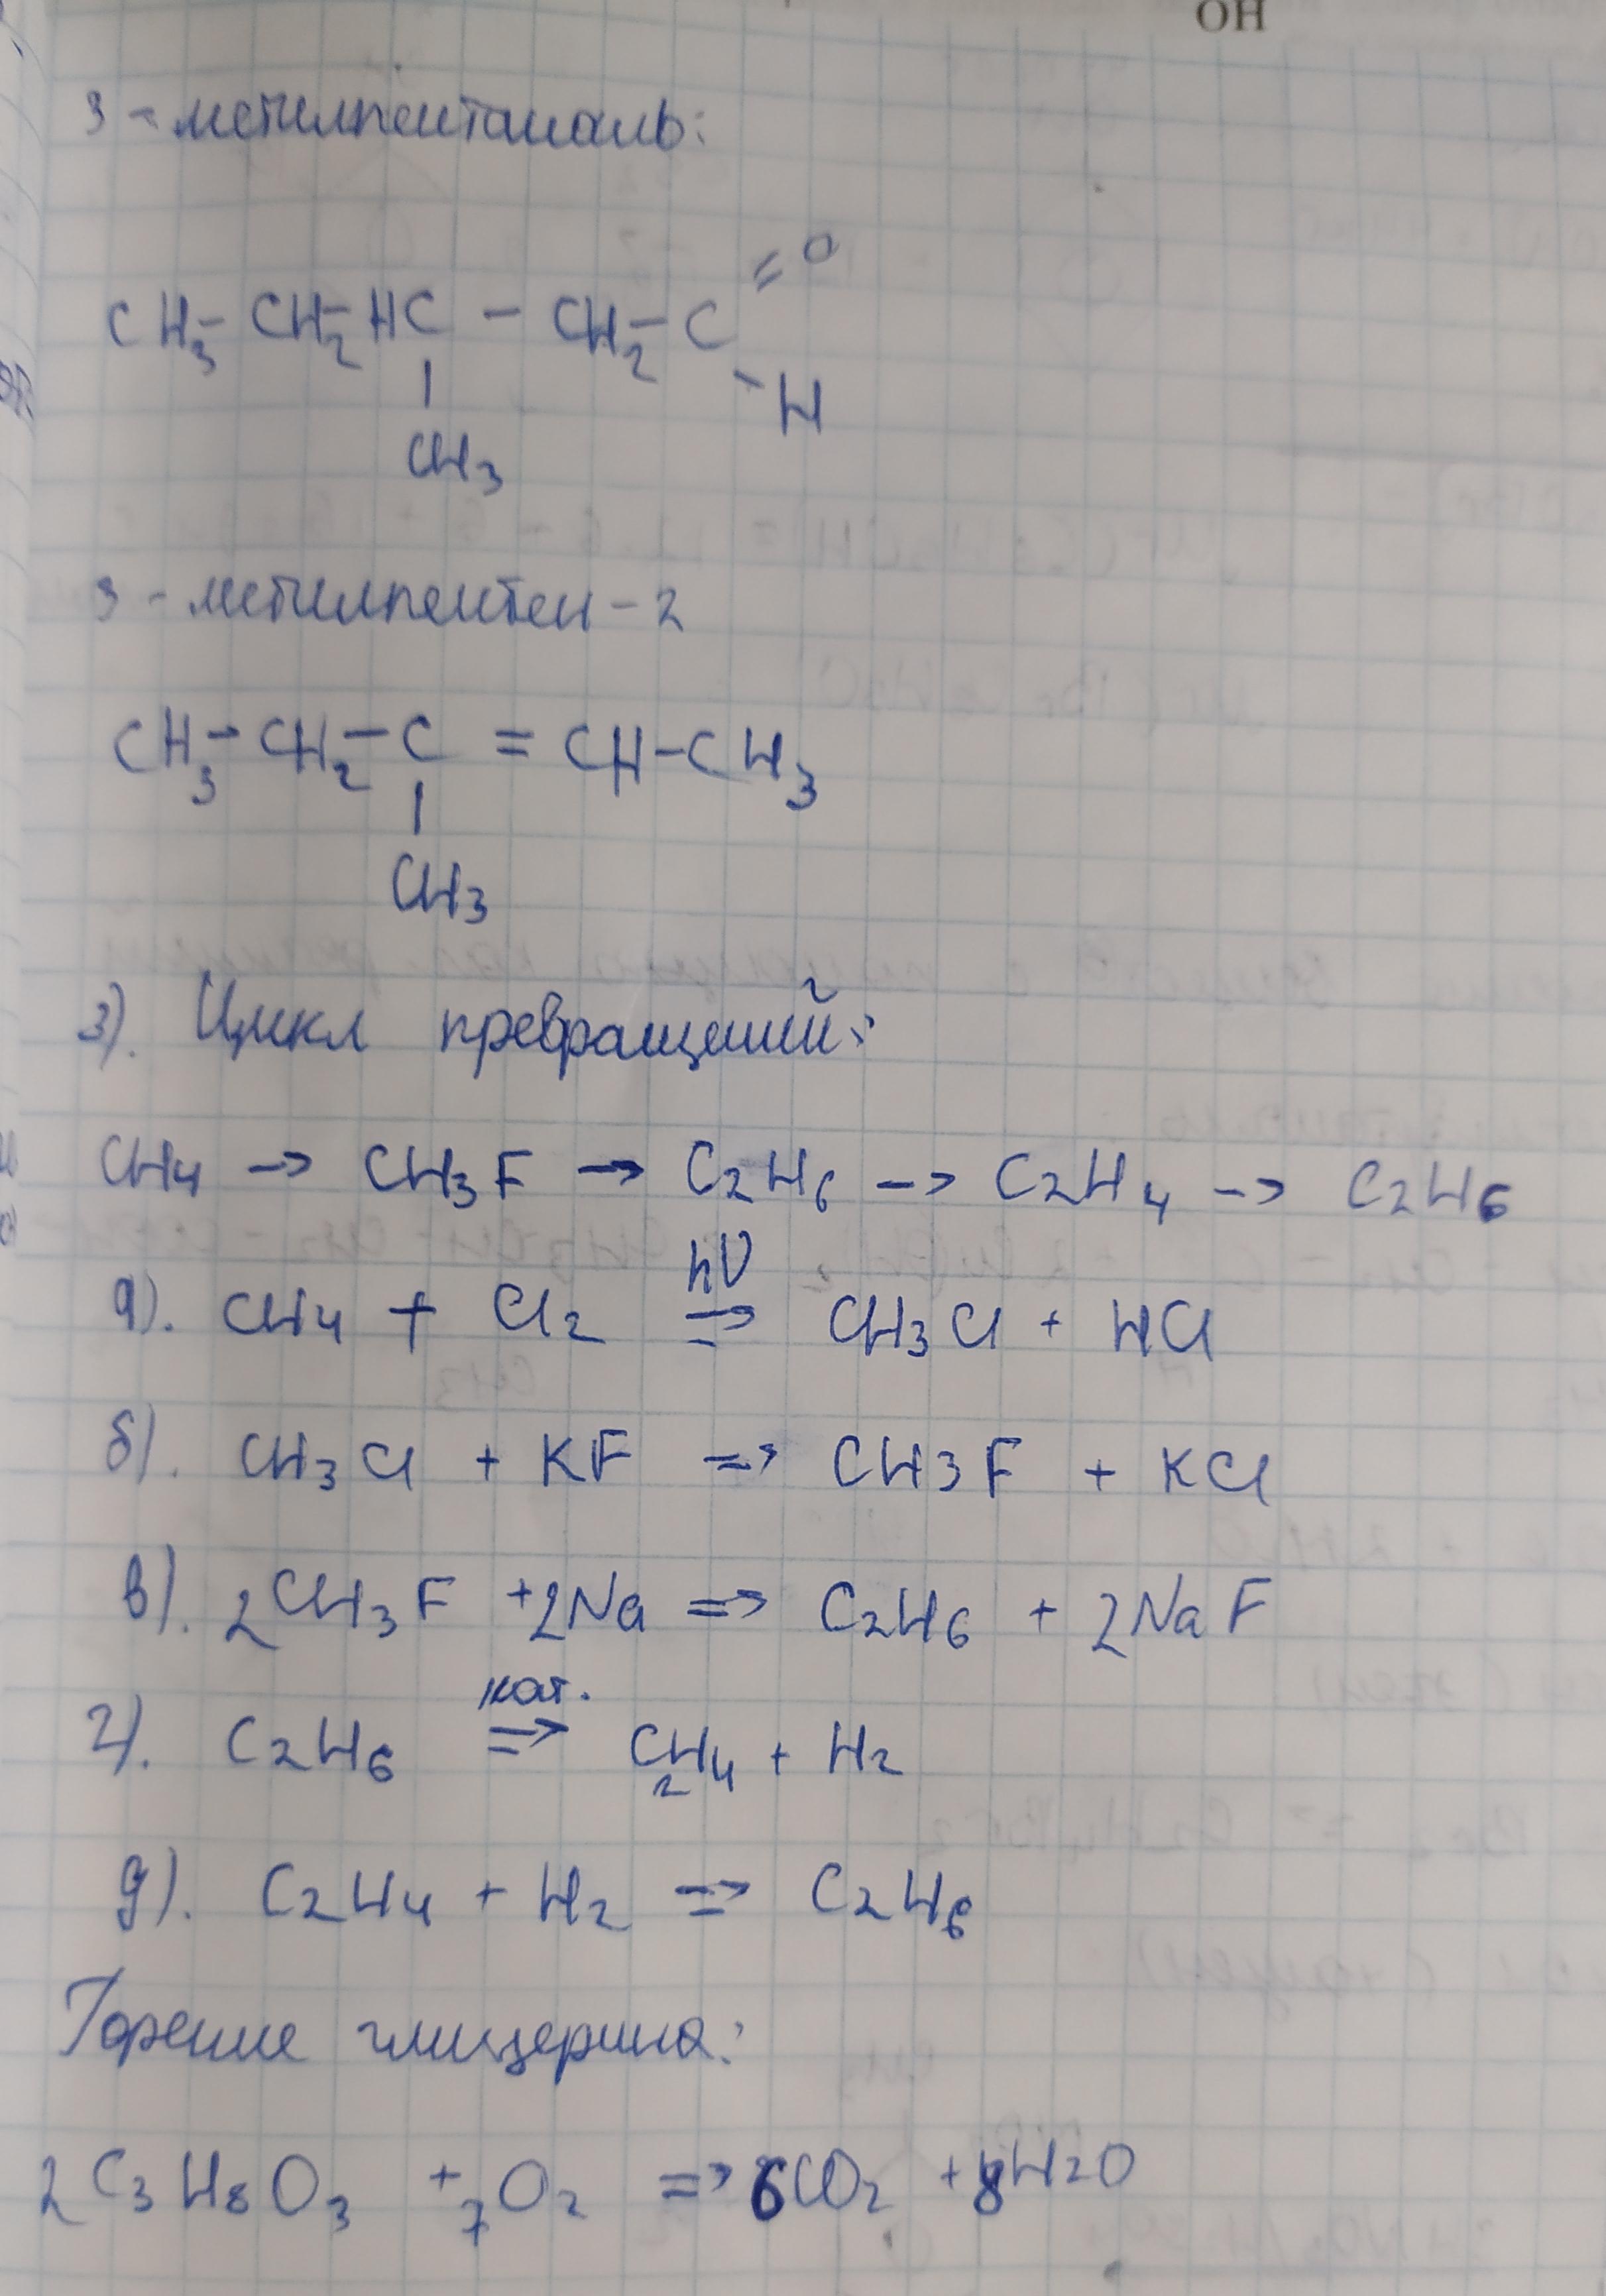 OH
3-метилпентаналь:
=O
CH3-CH2-HC-CH2-C
-H
CH3
3-метилпентен-2
CH3-CH2-C=CH-CH3
CH3
3). Цикл превращений:
CH4 -> CH3F -> C2H6 -> C2H4 -> C2H6
hV
а). CH4 + Cl2 => CH3Cl + HCl
б). CH3Cl + KF => CH3F + KCl
в). 2CH3F +2Na => C2H6 + 2NaF
кат.
г). C2H6 => C2H4 + H2
д). C2H4 + H2 => C2H6
Горение глицерина:
2C3H8O3 +7O2 => 6CO2 +8H2O